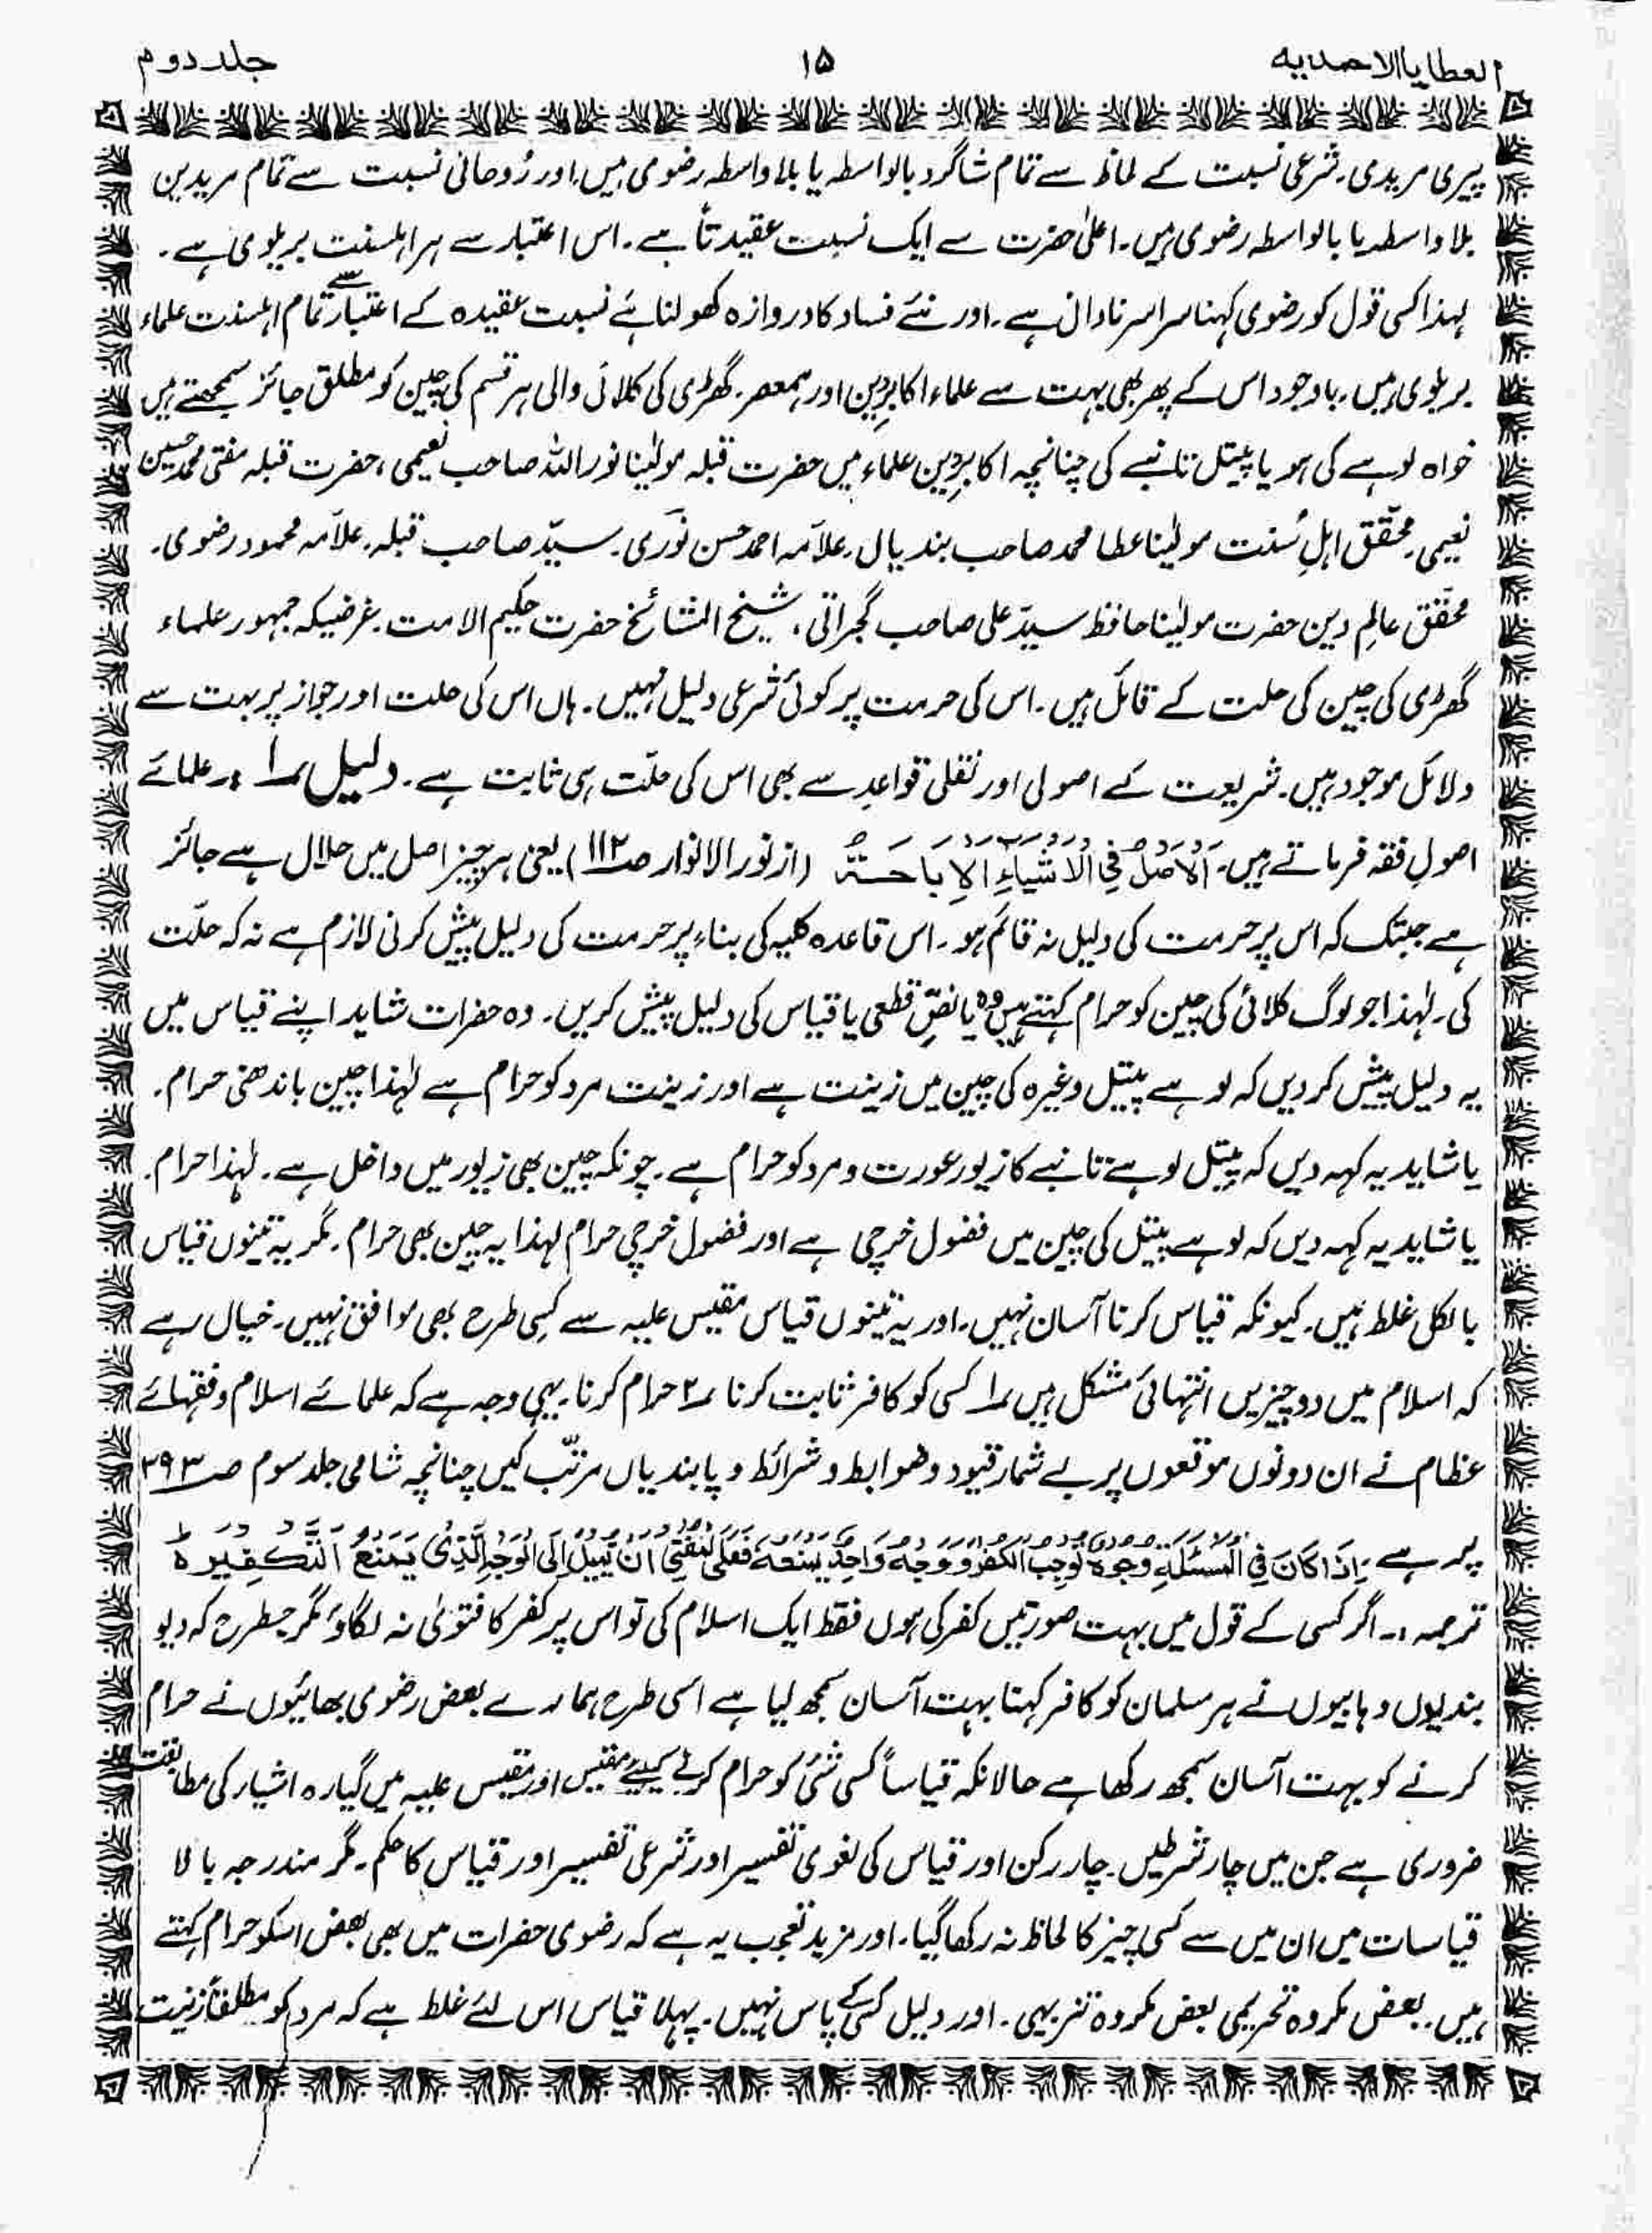 العطایا الاحمدیه ۱۵ جلد دوم
پیری مریدی۔ شرعی نسبت کے لحاظ سے تمام شاگرد بالواسطہ یا بلاواسطہ رضوی ہیں، اور رُوحانی نسبت سے تمام مریدین
بلا واسطہ یا بالواسطہ رضوی ہیں۔ اعلیٰ حضرت سے ایک نسبت عقیدتاً ہے۔ اس اعتبار سے ہر اہلسنت بریلوی ہے۔
لہذا کسی قول کو رضوی کہنا سراسر نادانی ہے۔ اور نئے فساد کا دروازہ کھولنا ہے نسبت عقیدہ کے اعتبار سے تمام اہلسنت علماء
بریلوی ہیں۔ باوجود اس کے پھر بھی بہت سے علماء اکابرین اور ہمعصر۔ گھڑی کی کلائی والی ہر قسم کی چین کو مطلق جائز سمجھتے ہیں
خواہ لوہے کی ہو یا پیتل تانبے کی چنانچہ اکابرین علماء میں حضرت قبلہ مولینا نور اللہ صاحب نعیمی، حضرت قبلہ مفتی محمد حسین
نعیمی۔ محقق اہلِ سُنت مولینا عطا محمد صاحب بندیال۔ علاّمہ احمد حسن نوری۔ سیّد صاحب قبلہ۔ علاّمہ محمود رضوی۔
محقق عالِم دین حضرت مولیٰنا حافظ سیّد علی صاحب گجراتی، شیخ المشائخ حضرت حکیم الامت۔ غرضیکہ جمہور علماء
گھڑی کی چین کی حلت کے قائل ہیں۔ اس کی حرمت پر کوئی شرعی دلیل نہیں۔ ہاں اس کی حلت اور جواز پر بہت سے
دلائل موجود ہیں۔ شریعت کے اصولی اور نقلی قواعدِ سے بھی اس کی حلّت ہی ثابت ہے۔ دلیل ۱؎ :۔ علمائے
اصولِ فقہ فرماتے ہیں۔ اَلْاَصْلُ فِی الْاَشْیَاءِ الْاِبَاحَۃُ (از نور الانوار صـ۱۱۲) یعنی ہر چیز اصل میں حلال ہے جائز
ہے جبتک کہ اس پر حرمت کی دلیل نہ قائم ہو۔ اس قاعدہ کلیہ کی بناء پر حرمت کی دلیل پیش کرنی لازم ہے نہ کہ حلّت
کی۔ لہٰذا جو لوگ کلائی کی چین کو حرام کہتے ہیں وہ یا نصِّ قطعی یا قیاس کی دلیل پیش کریں۔ وہ حضرات شاید اپنے قیاس میں
یہ دلیل پیش کر دیں کہ لوہے پیتل وغیرہ کی چین میں زینت ہے اور زینت مرد کو حرام ہے لہٰذا چین باندھنی حرام۔
یا شاید یہ کہہ دیں کہ پیتل لوہے تانبے کا زیور عورت و مرد کو حرام ہے۔ چونکہ چین بھی زیور میں داخل ہے۔ لہذا حرام۔
یا شاید یہ کہہ دیں کہ لوہے پیتل کی چین میں فضول خرچی ہے اور فضول خرچی حرام لہذا یہ چین بھی حرام۔ مگر یہ تینوں قیاس
بالکل غلط ہیں۔ کیونکہ قیاس کرنا آسان نہیں۔ اور یہ تینوں قیاس مقیس علیہ سے کسی طرح بھی موافق نہیں۔ خیال رہے
کہ اسلام میں دو چیزیں انتہائی مشکل ہیں ۱؎ کسی کو کافر ثابت کرنا ۲؎ حرام کرنا۔ یہی وجہ ہے کہ علمائے اسلام و فقہائے
عظام نے ان دونوں موقعوں پر بے شمار قیود و ضوابط و شرائط و پابندیاں مرتّب کیں چنانچہ شامی جلد سوم صـ۳۹۳
پر ہے :۔ اِذَا کَانَ فِی الْمَسْئَلَۃِ وُجُوْہٌ تُوْجِبُ الْکُفْرَ وَوَجْہٌ وَاحِدٌ یَمْنَعُہٗ فَعَلَی الْمُفْتِیْ اَنْ یَّمِیْلَ اِلَی الْوَجْہِ الَّذِیْ یَمْنَعُ التَّکْفِیْرَ ہ ط
ترجمہ :۔ اگر کسی کے قول میں بہت صورتیں کفر کی ہوں فقط ایک اسلام کی تو اس پر کفر کا فتویٰ نہ لگاؤ مگر جسطرح کہ دیو
بندیوں وہابیوں نے ہر مسلمان کو کافر کہنا بہت آسان سمجھ لیا ہے اسی طرح ہمارے بعض رضوی بھائیوں نے حرام
کرنے کو بہت آسان سمجھ رکھا ہے حالانکہ قیاساً کسی شئی کو حرام کرنے کیلئے مقیس اور مقیس علیہ میں گیارہ اشیار کی مطابقت
ضروری ہے جن میں چار شرطیں۔ چار رکن اور قیاس کی لغوی تفسیر اور شرعی تفسیر اور قیاس کا حکم۔ مگر مندرجہ بالا
قیاسات میں ان میں سے کسی چیز کا لحاظ نہ رکھا گیا۔ اور مزید تعجب یہ ہے کہ رضوی حضرات میں بھی بعض اسکو حرام کہتے
ہیں۔ بعض مکروہ تحریمی بعض مکروہ تنزیہی۔ اور دلیل کسی کے پاس نہیں۔ پہلا قیاس اس لئے غلط ہے کہ مرد کو مطلقاً زینت